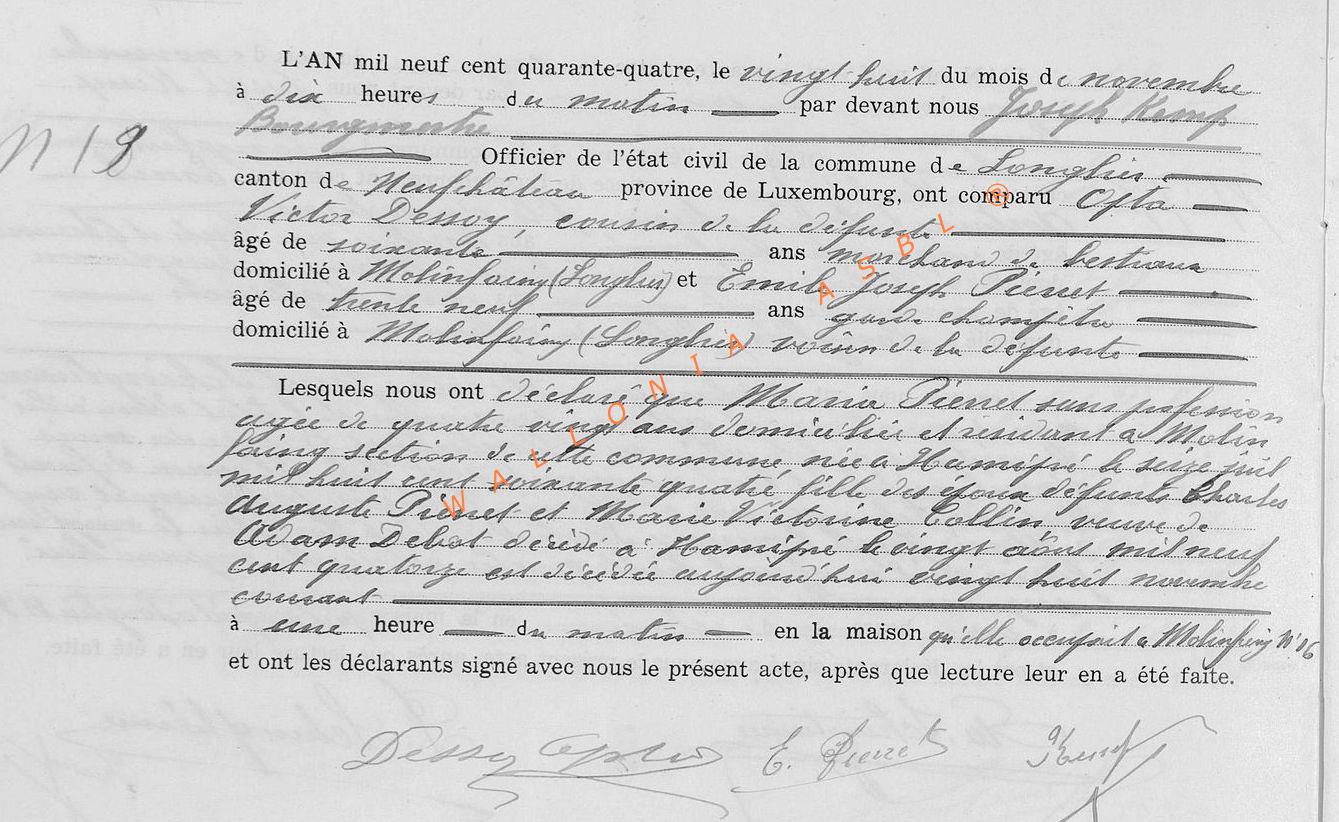 L'AN mil neuf cent quarante-quatre, le vingt huit du mois de novembre
à dix heures du matin par devant nous Joseph Kemp
Bourgmestre
N 18
Officier de l'état civil de la commune de Longlier
canton de Neufchâteau province de Luxembourg, ont comparu Opta
Victor Dessoy, cousin de la défunte
âgé de soixante ans marchand de bestiaux
domicilié à Molinfaing (Longlier) et Emile Joseph Pierret
âgé de trente neuf ans garde champêtre
domicilié à Molinfaing (Longlier) voisin de la défunte
Lesquels nous ont déclaré que Maria Pierret sans profession
agée de quatre vingt ans domiciliée et résidant à Molin
faing section de cette commune née à Hamipré le seize juil
mil huit cent soixante quatre fille des époux défunts Charles
Auguste Pierret et Marie Victorine Collin veuve de
Adam Debat décédé à Hamipré le vingt août mil neuf
cent quatorze est décédée aujourd'hui vingt huit novembre
courant
à une heure du matin en la maison qu'elle occupait à Molinfaing N° 16
et ont les déclarants signé avec nous le présent acte, après que lecture leur en a été faite.
Dessoy Opta E. Pierret Kemp
WALLONIA ASBL ®